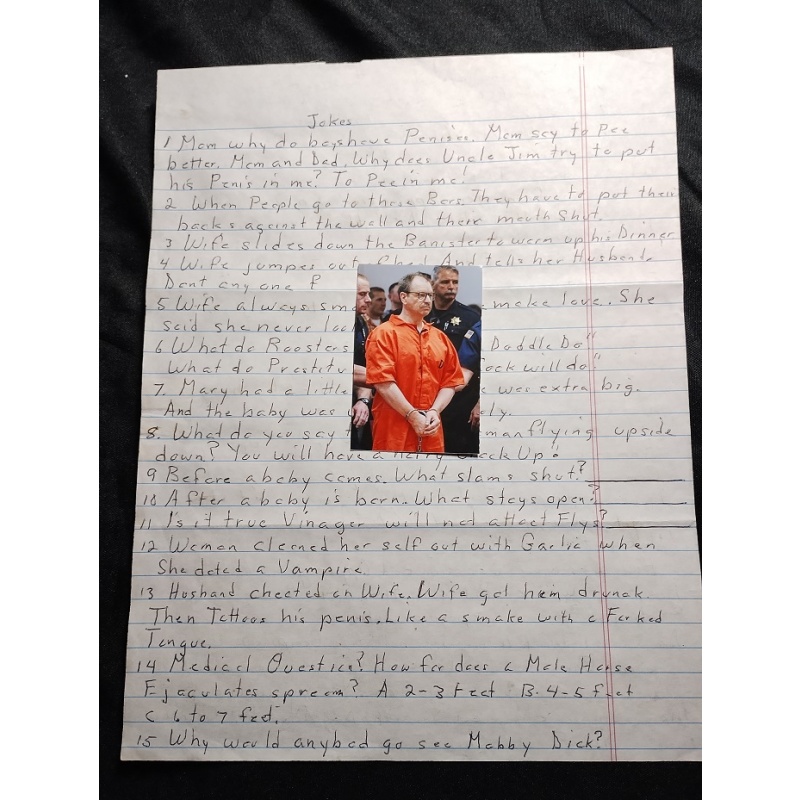 Jokes
2 When People go to these Bars. They have to put their
backs against the wall and there mouth shut.
3 Wife slides down the Banister to warm up his Dinner
4 Wife jumpes out And tells her Husband.
Dont any one
5 Wife always make love. She
said she never
6 What do Roosters Doddle Do"
What do will do"
7. Mary had a little was extra big.
And the baby was
8. What do you say flying upside
down? You will have a Up!
9 Before a baby comes. What slams shut?
10 After a baby is born.. What stays open?
11 Is it true Vinager will not attact Flys?
12 Woman cleaned her self out with Garlic when
She dated a Vampire.
13 Husband cheated on Wife. Wife got him drunak.
Then Tattoos his penis. Like a smake with a Forked
Tongue.
14 Medical Question? How far does a Male Horse
Ejaculates spream? A 2-3 Feet B. 4-5 feet
C 6 to 7 feet.
15 Why would anybod go see Mobby Dick?